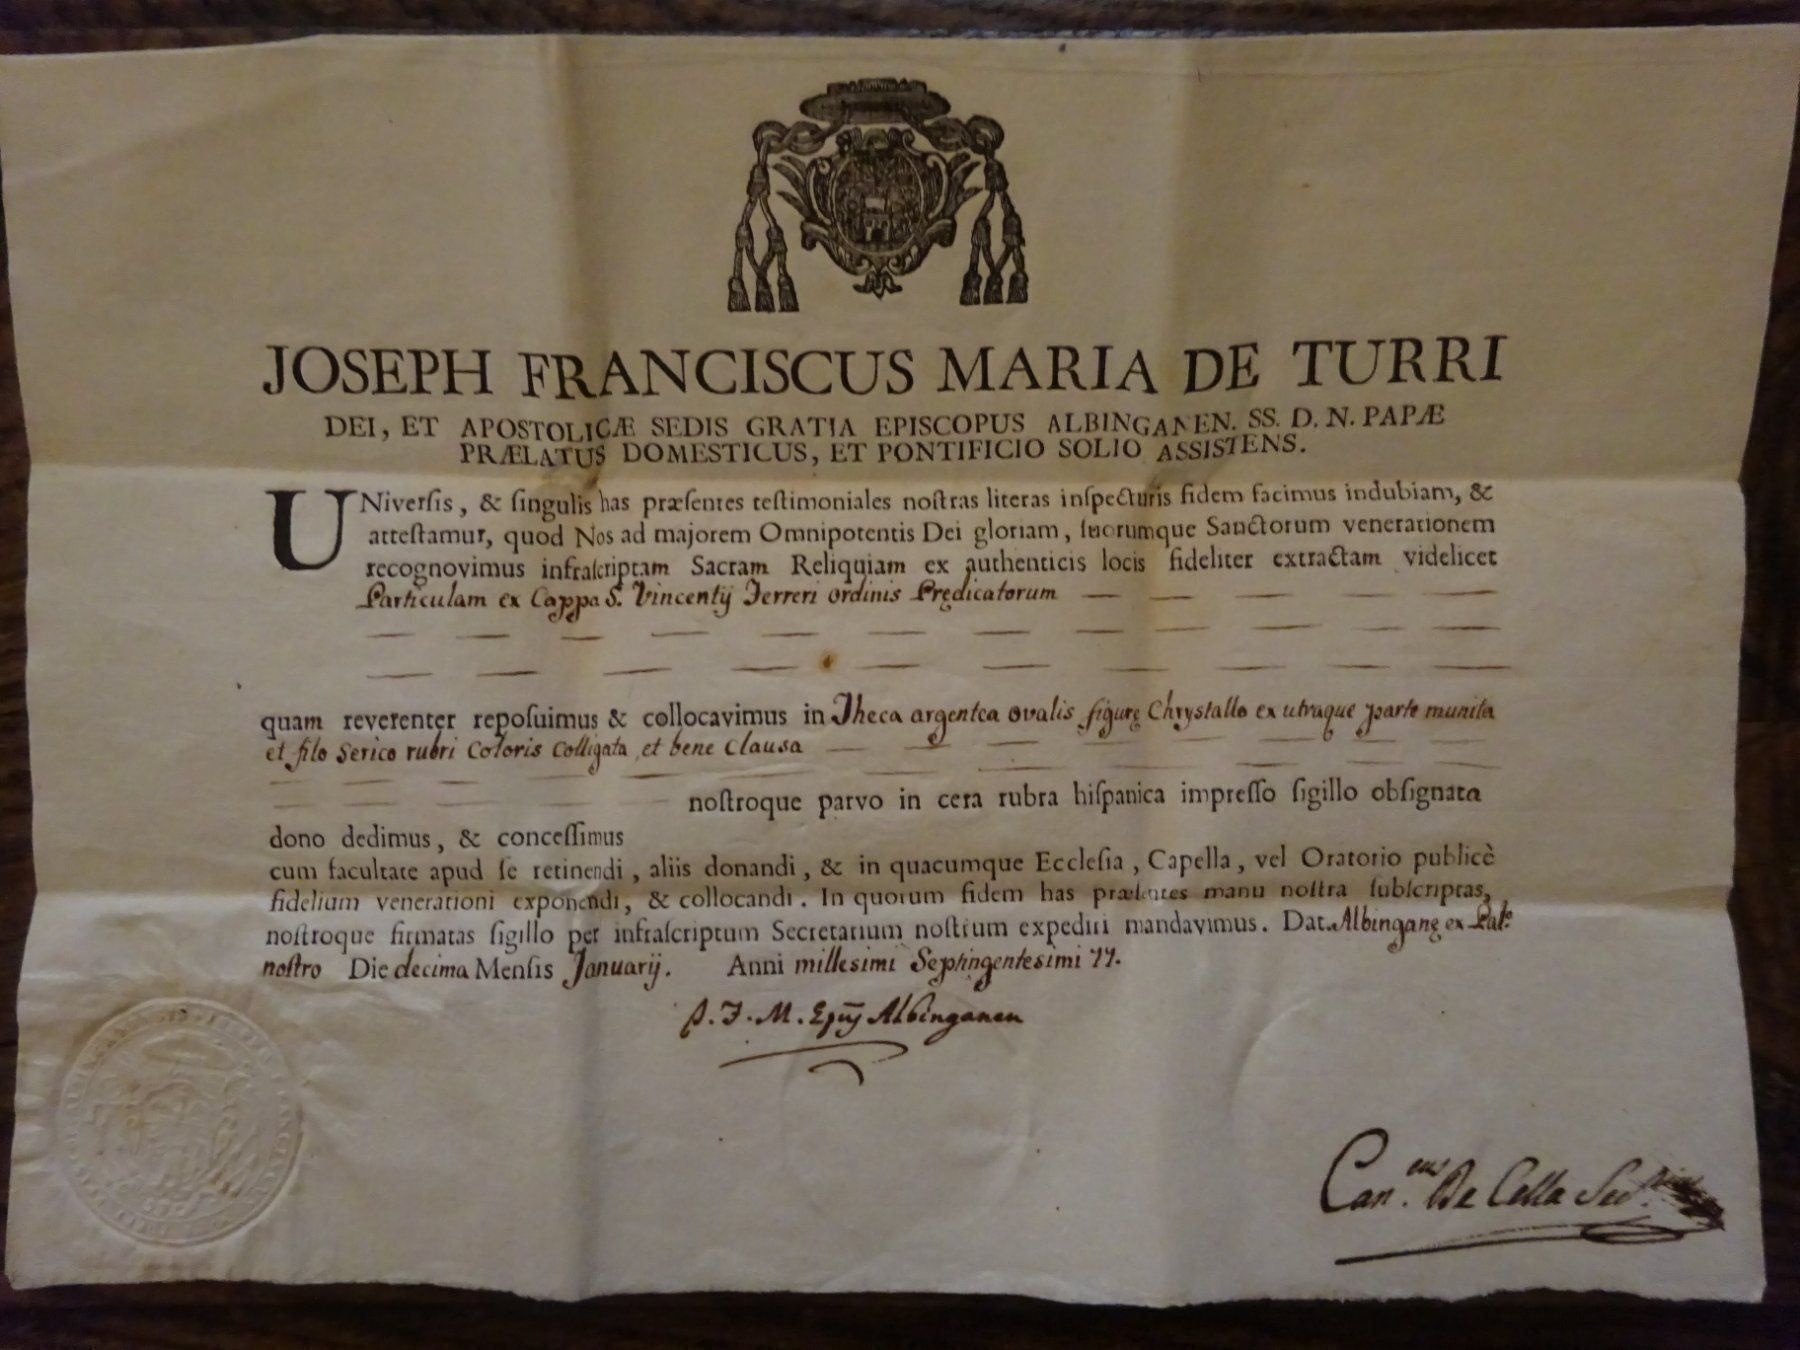 JOSEPH FRANCISCUS MARIA DE TURRI
DEI, ET APOSTOLICÆ SEDIS GRATIA EPISCOPUS ALBINGANEN. SS. D. N. PAPÆ
PRÆLATUS DOMESTICUS, ET PONTIFICIO SOLIO ASSISTENS.
UNiverſis, & ſingulis has præſentes teſtimoniales noſtras literas inſpecturis fidem facimus indubiam, &
atteſtamur, quod Nos ad majorem Omnipotentis Dei gloriam, ſuorumque Sanctorum venerationem
recognovimus infraſcriptam Sacram Reliquiam ex authenticis locis fideliter extractam videlicet
Particulam ex Cappa S. Vincentij Ferreri ordinis Prędicatorum
quam reverenter repoſuimus & collocavimus in Theca argentea ovalis figurę Chrystallo ex utraque parte munita
et filo serico rubri Coloris Colligata, et bene Clausa
noſtroque parvo in cera rubra hiſpanica impreſſo ſigillo obſignata
dono dedimus, & conceſſimus
cum facultate apud ſe retinendi, aliis donandi, & in quacumque Eccleſia, Capella, vel Oratorio publicè
fidelium venerationi exponendi, & collocandi. In quorum fidem has præſentes manu noſtra ſubſcriptas,
noſtroque firmatas ſigillo per infraſcriptum Secretarium noſtrum expediri mandavimus. Dat. Albinganę ex Pal.º
nostro Die decima Menſis Januarij. Anni millesimi Septingentesimi 77.
J. M. Epũs Albinganen
Can.cus De Cella